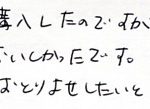 購入したのですが
おいしかったです。
おとりよせしたいと